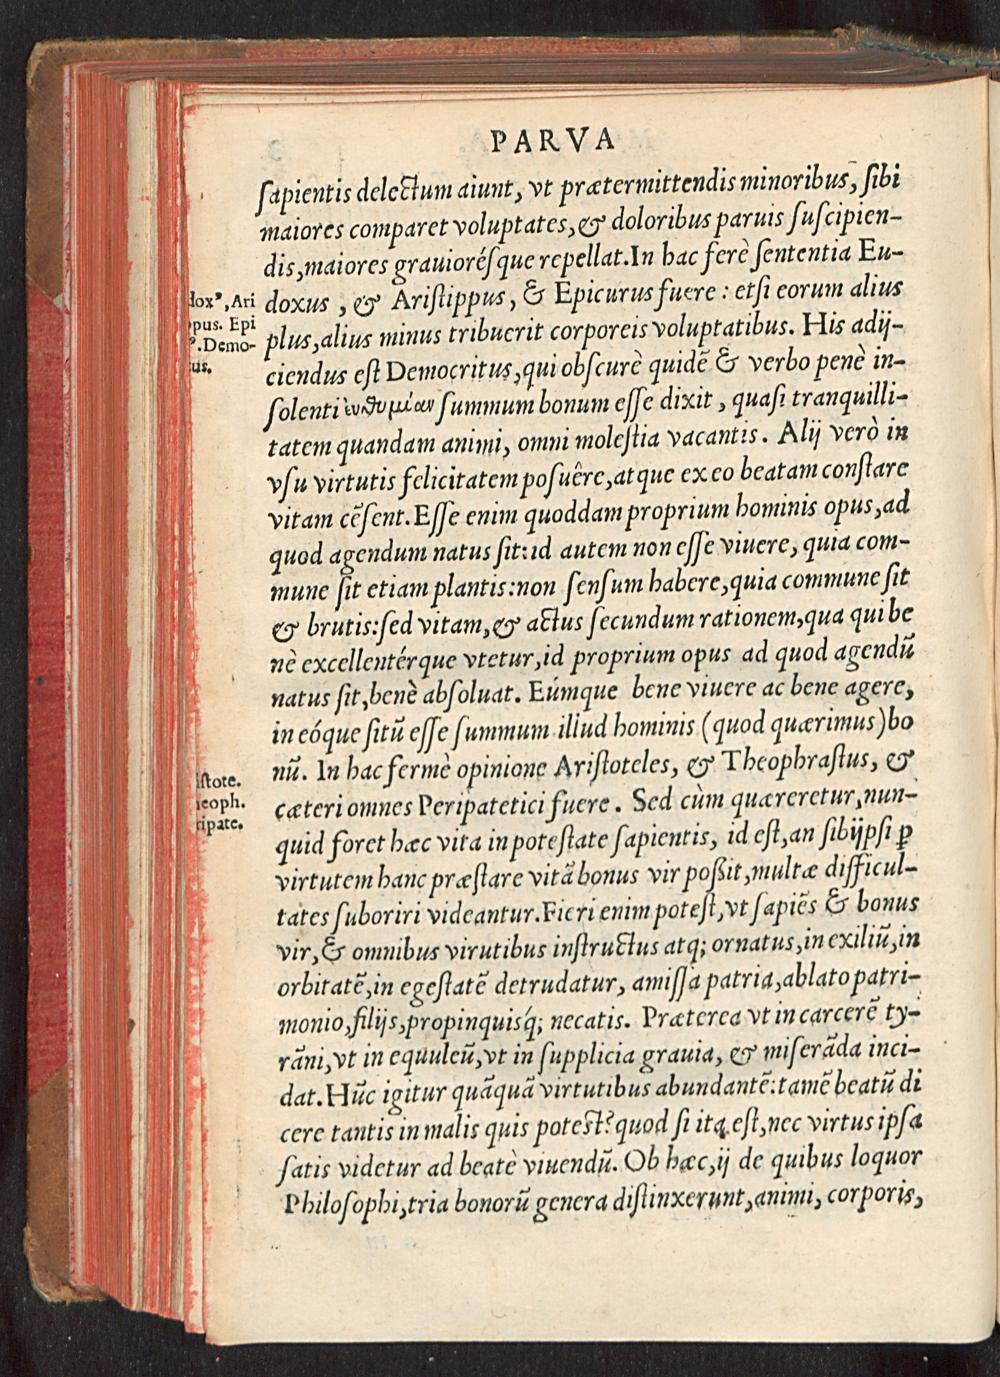 PARVA
ſapientis delectum aiunt, vt prætermittendis minoribus, ſibi
maiores comparet voluptates, & doloribus paruis ſuſcipien-
dis, maiores grauioréſque repellat. In hac ferè ſententia Eu-
doxus, & Ariſtippus, & Epicurus fuere: etſi eorum alius
plus, alius minus tribuerit corporeis voluptatibus. His adij-
ciendus eſt Democritus, qui obſcurè quidẽ & verbo penè in-
ſolenti ἐυθυμίαν ſummum bonum eſſe dixit, quaſi tranquilli-
tatem quandam animi, omni moleſtia vacantis. Alij verò in
vſu virtutis felicitatem poſuêre, atque ex eo beatam conſtare
vitam cẽſent. Eſſe enim quoddam proprium hominis opus, ad
quod agendum natus ſit: id autem non eſſe viuere, quia com-
mune ſit etiam plantis: non ſenſum habere, quia commune ſit
& brutis: ſed vitam, & actus ſecundum rationem, qua qui be
nè excellentérque vtetur, id proprium opus ad quod agendũ
natus ſit, benè abſoluat. Eúmque bene viuere ac bene agere,
in eóque ſitũ eſſe ſummum illud hominis (quod quærimus) bo
nũ. In hac fermè opinione Ariſtoteles, & Theophraſtus, &
cæteri omnes Peripatetici fuere. Sed cùm quæreretur, nun-
quid foret hæc vita in poteſtate ſapientis, id eſt, an ſibijpſi ꝑ
virtutem hanc præſtare vitã bonus vir poßit, multæ difficul-
tates ſuboriri videantur. Fieri enim poteſt, vt ſapiẽs & bonus
vir, & omnibus virutibus inſtructus atq; ornatus, in exiliũ, in
orbitatẽ, in egeſtatẽ detrudatur, amiſſa patria, ablato patri-
monio, filijs, propinquiſq́; necatis. Præterea vt in carcerẽ ty-
rãni, vt in equuleũ, vt in ſupplicia grauia, & miſerãda inci-
dat. Hũc igitur quãquã virtutibus abundantẽ: tamẽ beatũ di
cere tantis in malis quis poteſt? quod ſi ita eſt, nec virtus ipſa
ſatis videtur ad beatè viuendũ. Ob hæc, ij de quibus loquor
Philoſophi, tria bonorũ genera diſtinxerunt, animi, corporis,
dox⁹, Ari
pus. Epi
⁹. Demo-
us.
iſtote.
eoph.
ripate.